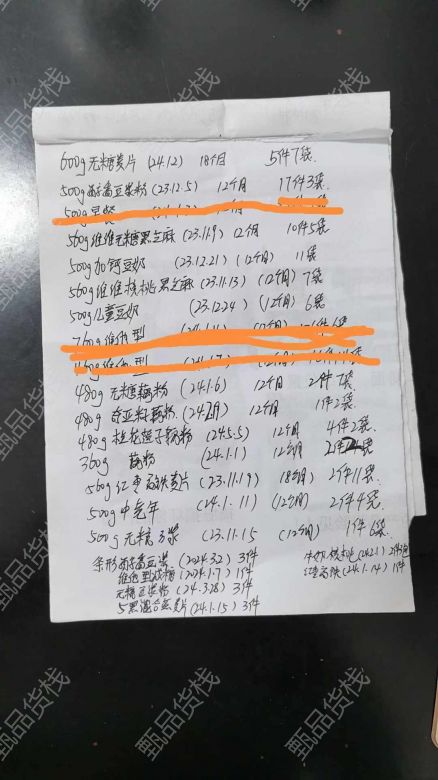 600g无糖麦片 (24.1.2) 18个月 5件7袋.
500g醇香豆浆粉 (23.12.5) 12个月 17件3袋.
500g早餐
560g维维无糖黑芝麻 (23.11.9) 12个月 10件5袋
500g加钙豆奶 (23.12.21) (12个月) 11袋
560g维维核桃黑芝麻 (23.11.13) (12个月) 7袋
500g儿童豆奶 (23.12.24) (12个月) 6袋
760g维他型 (24.1.11) (12个月)
维他型 (24.1.7) (12个月)
480g无糖藕粉 (24.1.6) 12个月 2件7袋
480g 藕粉 (24.2月) 12个月 1件2袋
480g桂花莲子藕粉 (24.5.5) 12个月 4件2袋
360g 藕粉 (24.1.1) 12个月
560g红枣 麦片 (23.11.19) 18个月 2件11袋
500g中老年 (24.1.11) (12个月) 2件4袋
500g无糖豆浆 23.11.15 (12个月) 1件6袋
条形醇香豆浆 (2024.3.2) 3件
维他型 (2024.1.7) 1件
无糖豆浆粉 (24.3.28) 3件
5黑混合麦片 (24.1.15) 3件
(24.1.14) 1件
甄品货栈
甄品货栈
甄品货栈
甄品货栈
甄品货栈
甄品货栈